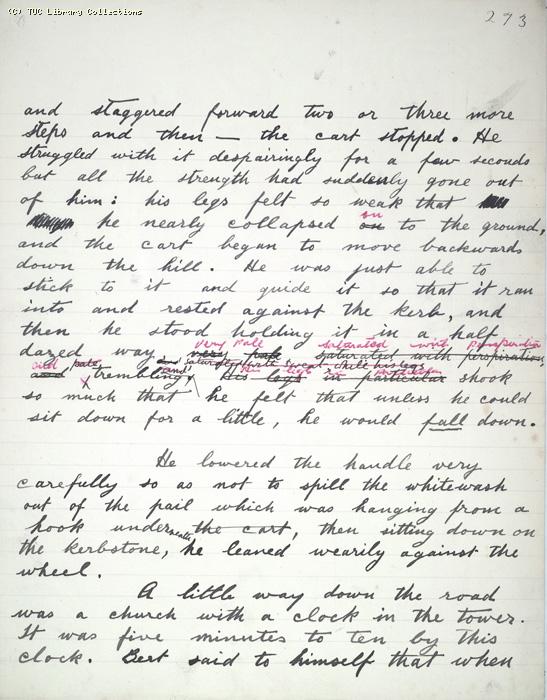 (C) TUC Library Collections
273
and staggered forward two or three more
steps and then — the cart stopped. He
struggled with it despairingly for a few seconds
but all the strength had suddenly gone out
of him: his legs felt so weak that
he nearly collapsed on on to the ground,
and the cart began to move backwards
down the hill. He was just able to
stick to it and guide it so that it ran
into and rested against the kerb, and
then he stood holding it in a half
very pale saturated with perspiration
dazed way very pale saturated with perspiration,
and trembling, and His legs in particular shook
so much that he felt that unless he could
sit down for a little, he would fall down.
He lowered the handle very
carefully so as not to spill the whitewash
out of the pail which was hanging from a
hook underneath the cart, then sitting down on
the kerbstone, he leaned wearily against the
wheel.
A little way down the road
was a church with a clock in the tower.
It was five minutes to ten by this
clock. Bert said to himself that when